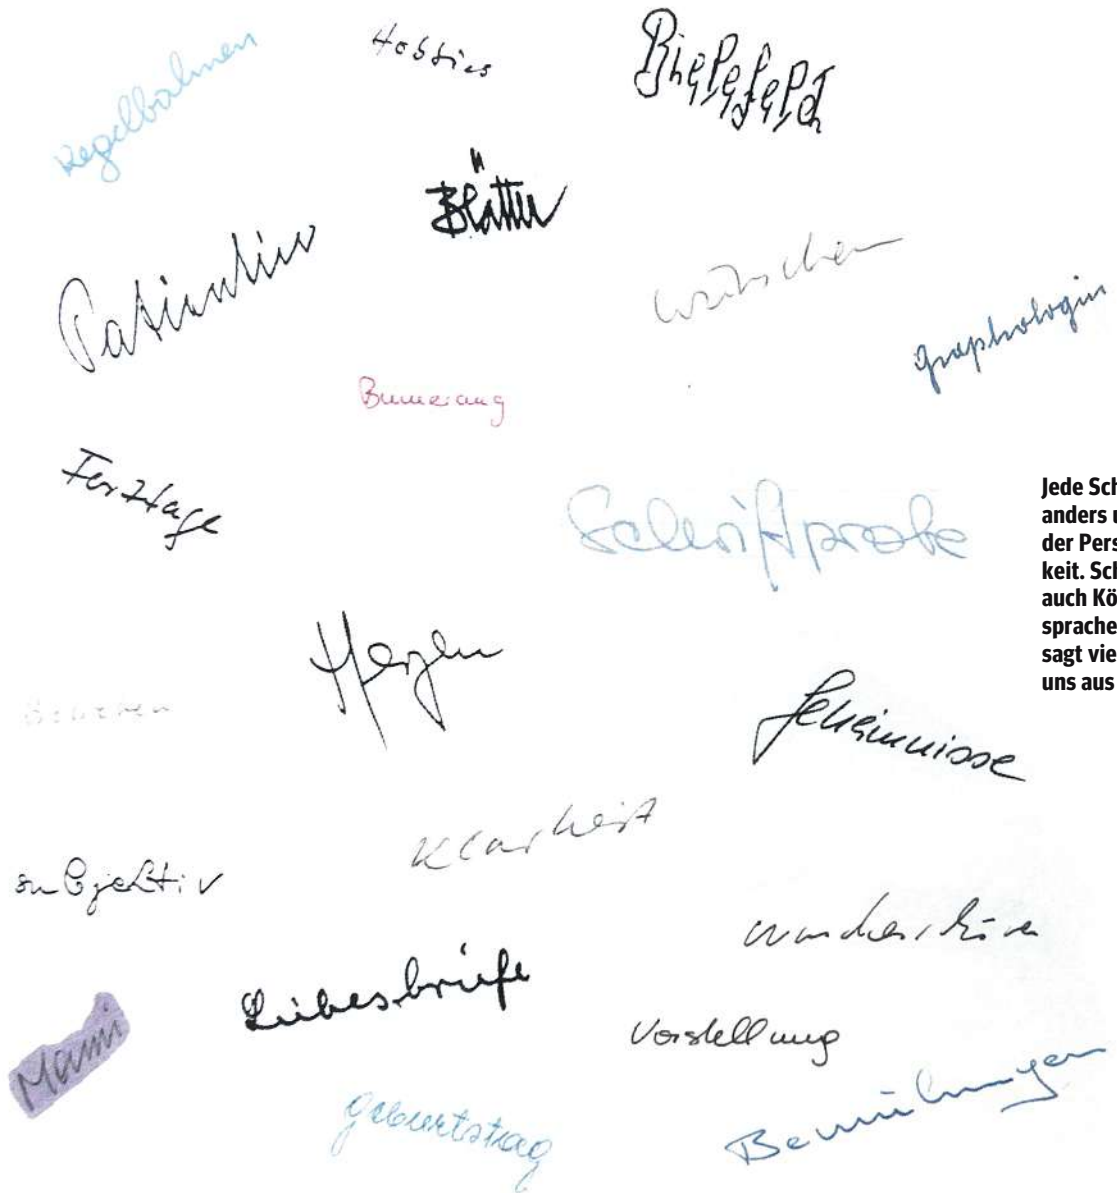 Kegelbahnen
Hobbies
Bielefeld
Blätter
Patientin
wünschen
Graphologin
Bumerang
Festtage
Schriftprobe
Jede Sch
anders u
der Pers
keit. Sch
auch Kö
sprache
sagt vie
uns aus
Herzen
Geheimnisse
Klarheit
subjektiv
wunderschönen
Liebesbriefe
Vorstellung
Mami
Geburtstag
Bemühungen